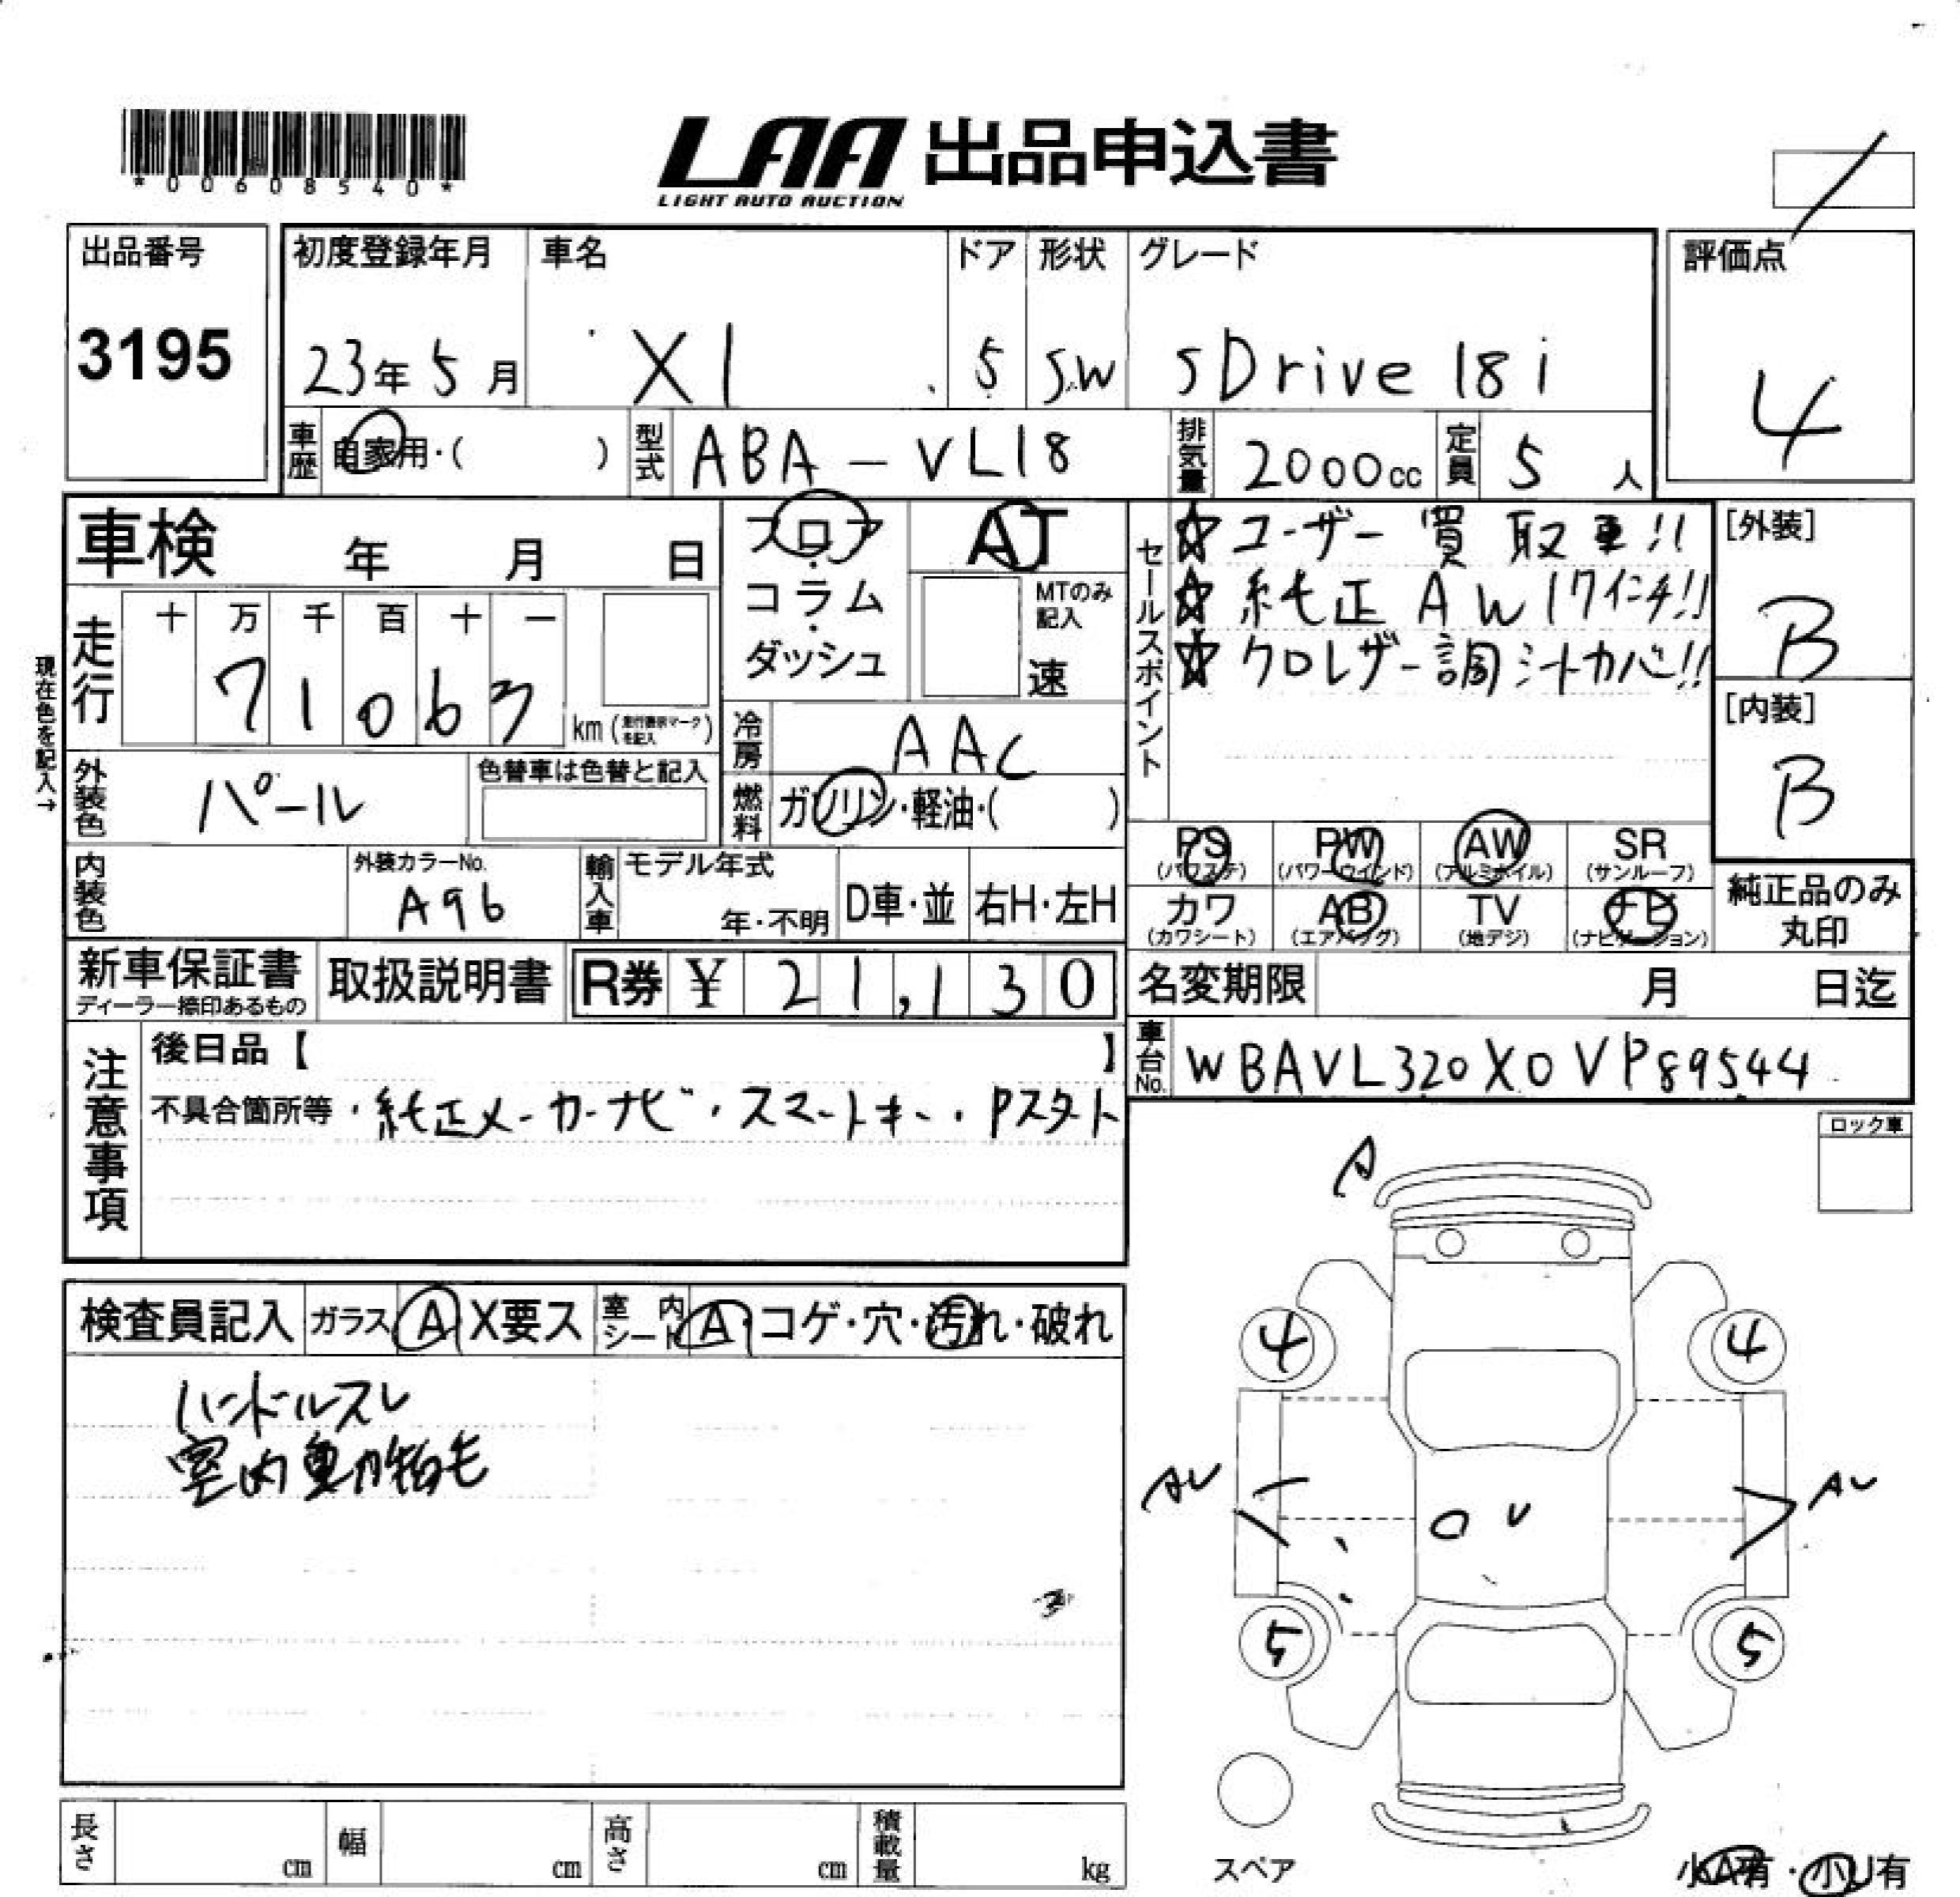 *00608540*
LAA 出品申込書
LIGHT AUTO AUCTION
出品番号
3195
初度登録年月 車名 ドア 形状 グレード
23年5月 X1 5 S.W sDrive 18i
評価点
4
車歴 自家用・( ) 型式 ABA-VL18 排気量 2000cc 定員 5人
車検 年 月 日
フロア・コラム・ダッシュ
AT
MTのみ記入
速
セールスポイント
☆ユーザー買取車!!
☆純正AW17インチ!!
☆クロレザー調シートカバー!!
[外装]
B
[内装]
B
現在色を記入→
走行 十 万 千 百 十 一
71063 km (走行表示マークを記入)
冷房 AAC
外装色 パール 色替車は色替と記入
燃料 ガソリン・軽油・( )
PS (パワステ) PW (パワーウインド) AW (アルミホイル) SR (サンルーフ)
カワ (カワシート) AB (エアバッグ) TV (地デジ) ナビ (ナビゲーション)
純正品のみ丸印
内装色 外装カラーNo. A96
輸入車 モデル年式 年・不明 D車・並 右H・左H
新車保証書 ディーラー捺印あるもの 取扱説明書 R券 ¥21,130
名変期限 月 日迄
車台No. WBAVL320X0VP89544
注意事項
後日品【 】
不具合箇所等・純正メーカーナビ・スマートキー・Pスタート
ロック車
検査員記入 ガラス A X要ス 室内シート A・コゲ・穴・汚れ・破れ
ハンドルスレ
室内動物毛
A
4 4
AU AU
U
5 5
スペア
小A有・小U有
長さ cm 幅 cm 高さ cm 積載量 kg